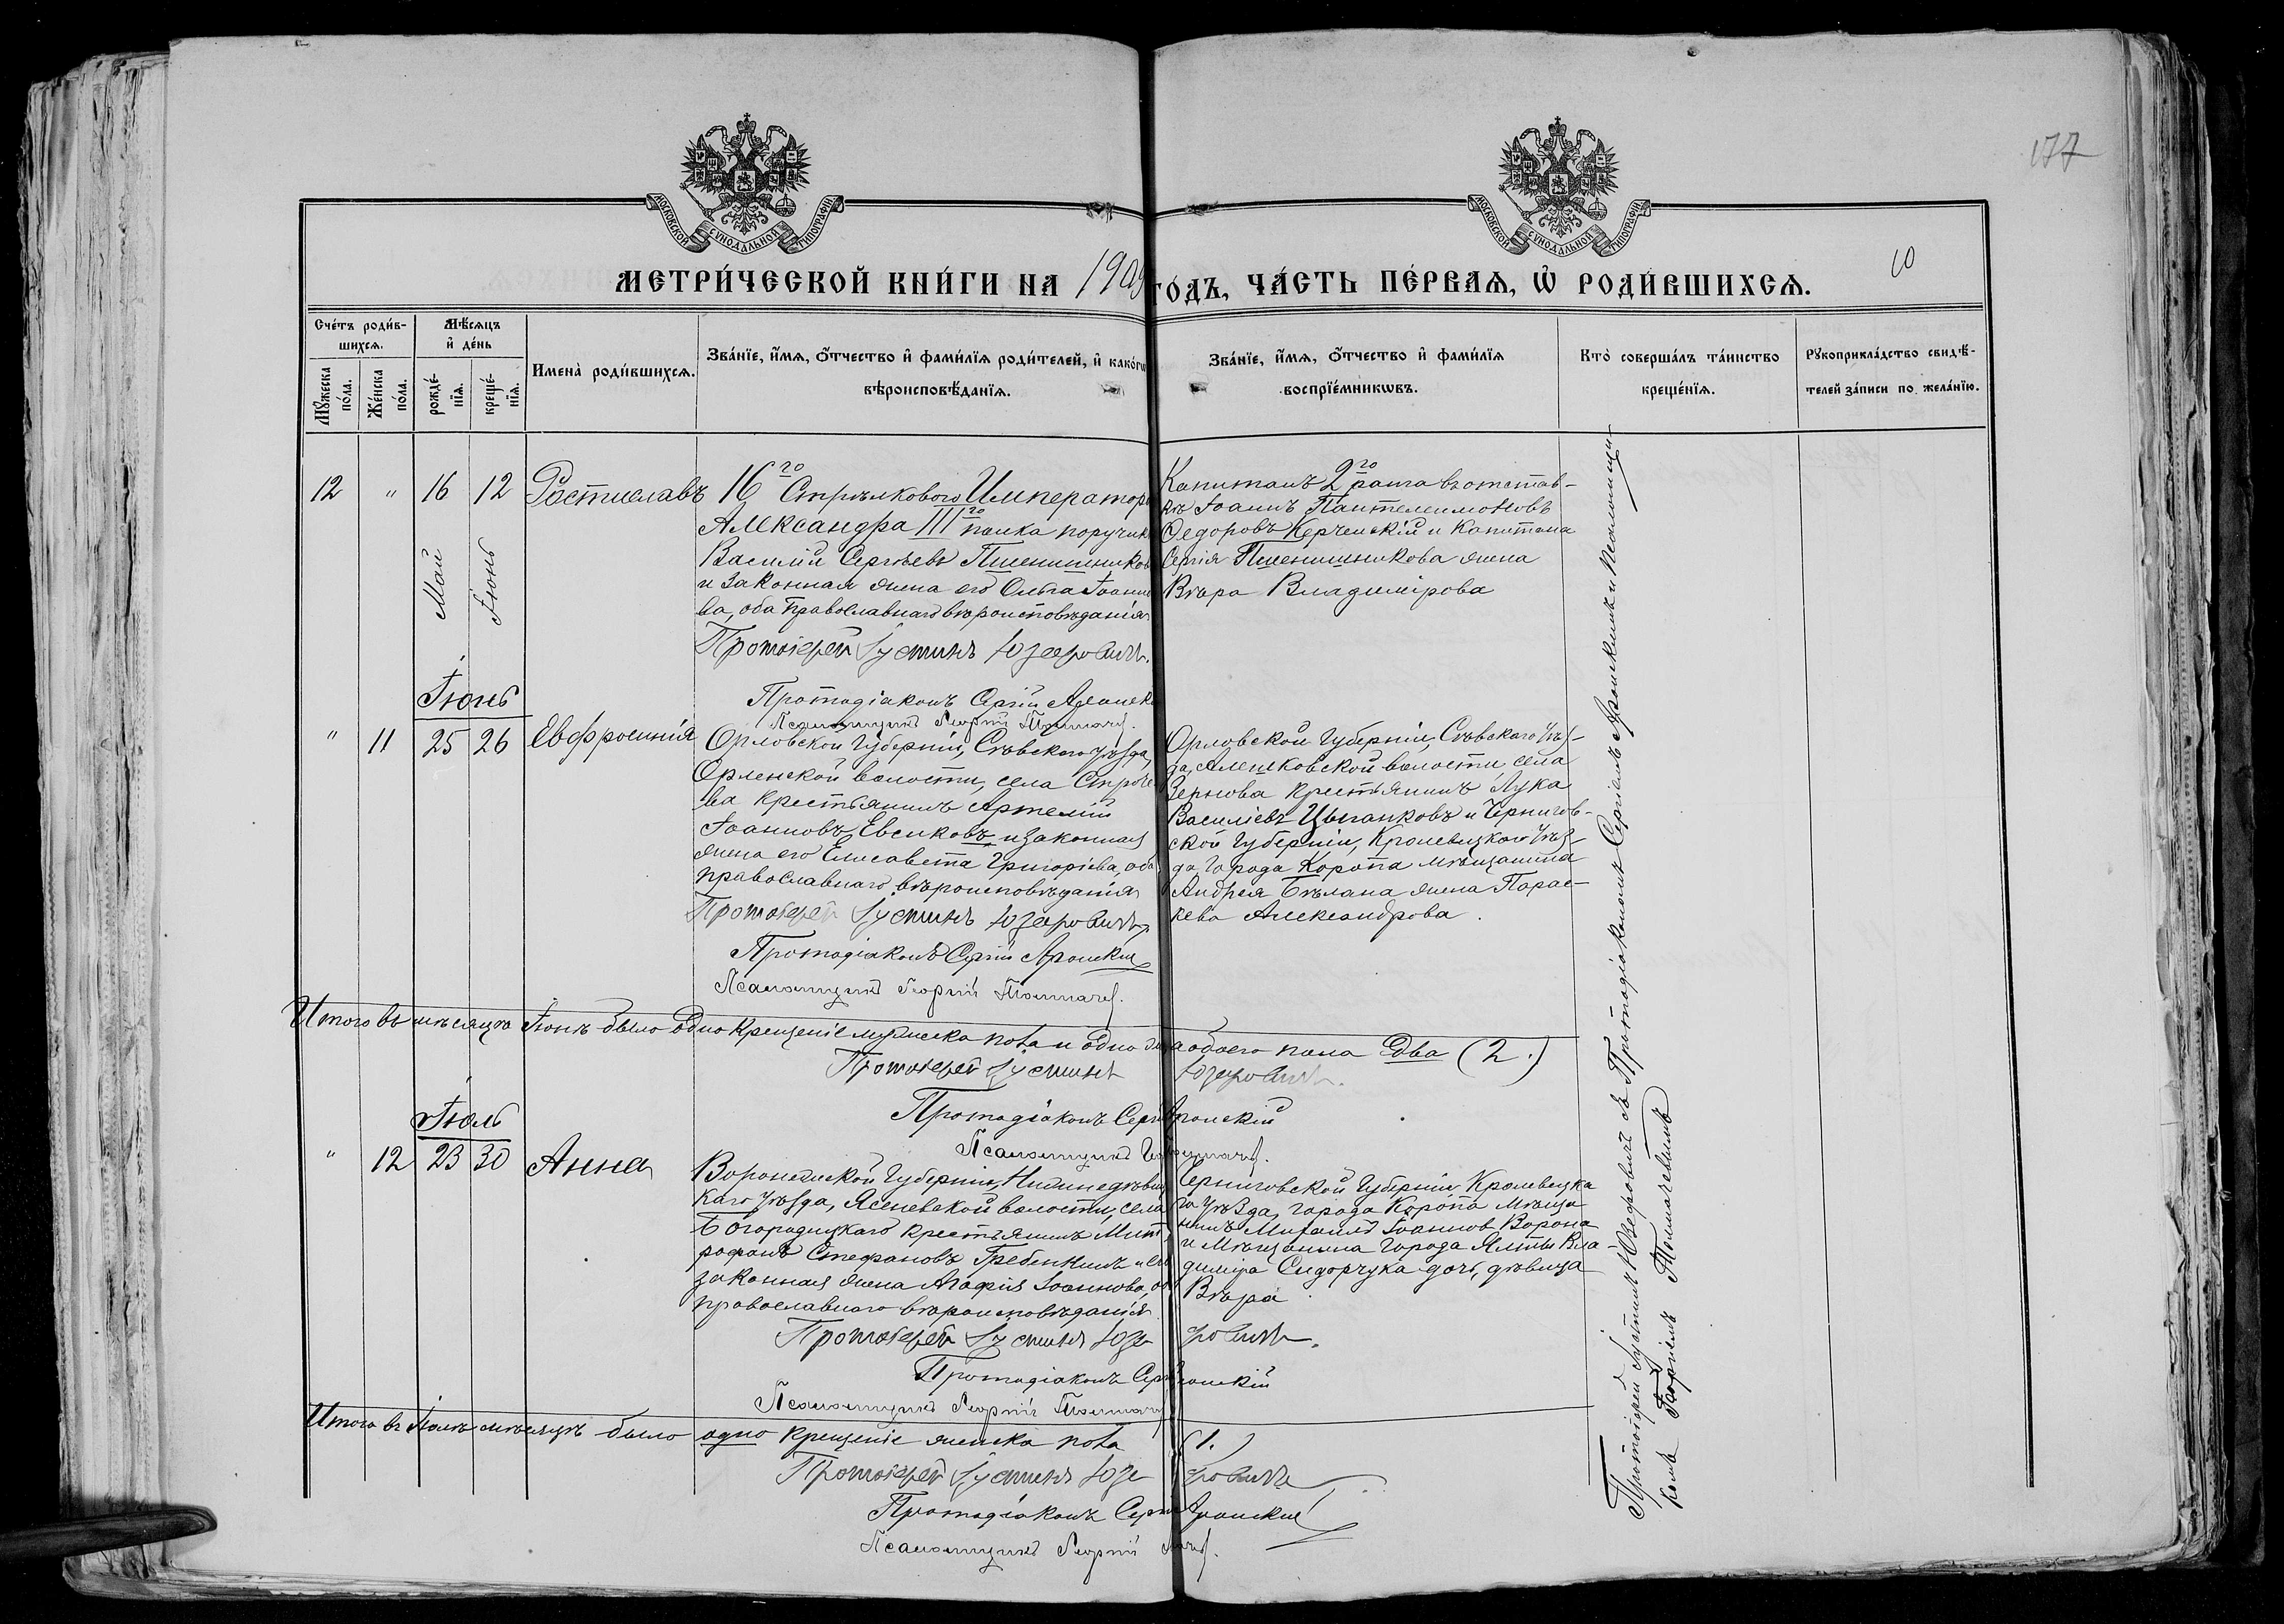 177
МОСКОВСКОЙ СѴНОДАЛЬНОЙ ТИПОГРАФІИ
МОСКОВСКОЙ СѴНОДАЛЬНОЙ ТИПОГРАФІИ
МЕТРИ́ЧЕСКОЙ КНИ́ГИ НА 1909 ГО́ДЪ, ЧА́СТЬ ПЕ́РВАѦ, Ѡ РОДИ́ВШИХСѦ.
10
Сче́тъ роди́в-
шихсѧ.
Мѣ́сѧцъ
и҆ де́нь
Мꙋ́жеска по́ла.
Же́нска по́ла.
рожде́-нїѧ.
креще́-нїѧ.
И҆мена̀ роди́вшихсѧ.
Зва́нїе, и҆́мѧ, ѻ҆́тчество и҆ фами́лїѧ роди́телей, и҆ како́гѡ
вѣроисповѣ́данїѧ.
Зва́нїе, и҆́мѧ, ѻ҆́тчество и҆ фами́лїѧ
воспрїе́мникѡвъ.
Кто̀ соверша́лъ та́инство
креще́нїѧ.
Рꙋкоприкла́дство свидѣ́-
телей за́писи по жела́нїю.
12 " 16 12 Ростиславъ
Май Іюнь
16го Стрѣлковаго Император
Александра IIIго полка поручик
Василій Сергѣевъ Пшенишников
и законная жена его Ольга Іоанно
ва, оба православнаго вѣроисповѣданія
Протоіерей Іустинъ Юзефовичъ.
Протодіаконъ Сергій Аронск
Псаломщикъ Георгій Толмачев.
Капитанъ 2го ранга въ отстав-
кѣ Іоаннъ Пантелеимоновъ
Ѳедоровъ Керченскій и Капитана
Сергія Пшенишникова жена
Вѣра Владимірова
Іюнь
" 11 25 26 Евфросинія
Орловской губерніи, Сѣвскаго уѣзда,
волости, села Строче
ва крестьянинъ Артемій
Іоанновъ Евсиковъ и законная
жена его Елисавета Григоріева, оба
православнаго вѣроисповѣданія
Протоіерей Іустинъ Юзефовичъ
Протодіаконъ Сергій Аронскій
Псаломщикъ Георгій Толмачев.
Орловской губерніи, Сѣвскаго уѣз-
да, Алешковской волости, села
Зернова крестьянинъ Лука
Васильевъ Цыганковъ и Чернигов-
ской губерніи, Кролевецкаго уѣз-
да города Коропа мѣщанина
Андрея Бѣлана жена Парас-
кева Александрова.
Итого въ мѣсяцѣ Іюнѣ было одно крещеніе мужеска пола и одно обоего пола два (2.)
Протоіерей Іустинъ Юзефовичъ.
Протодіаконъ Сергій Аронскій
Псаломщикъ Толмачев.
Іюль
" 12 23 30 Анна
Воронежской губерніи, Нижнедѣвиц
каго уѣзда, Ясеневской волости, села
Богородицкаго крестьянинъ Мит
рофанъ Стефановъ Гребенкинъ и его
законная жена Агафія Іоаннова, оба
православнаго вѣроисповѣданія.
Протоіерей Іустинъ Юзефовичъ.
Протодіаконъ Сергій Аронскій
Псаломщикъ Георгій Толмачев
Черниговской губерніи Кролевецка
го уѣзда, города Коропа мѣща
нинъ Михаилъ Іоаннов Ворона
и мѣщанина города Ялты Вла-
диміра Сидорчука дочь, дѣвица
Вѣра.
Итого въ Іюлѣ мѣсяцѣ было одно крещеніе женска пола (1.)
Протоіерей Іустинъ Юзефовичъ
Протодіаконъ Сергій Аронскій
Псаломщикъ Георгій
Протоіерей Іустинъ Юзефовичъ съ Протодіакономъ Сергіемъ Аронскимъ и Псаломщи-
комъ Георгіемъ Толмачевымъ